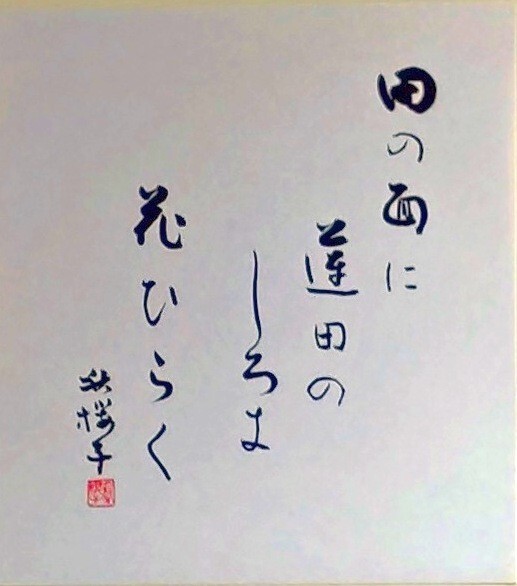 田の面に
蓮田の
しろき
花ひらく
秋櫻子